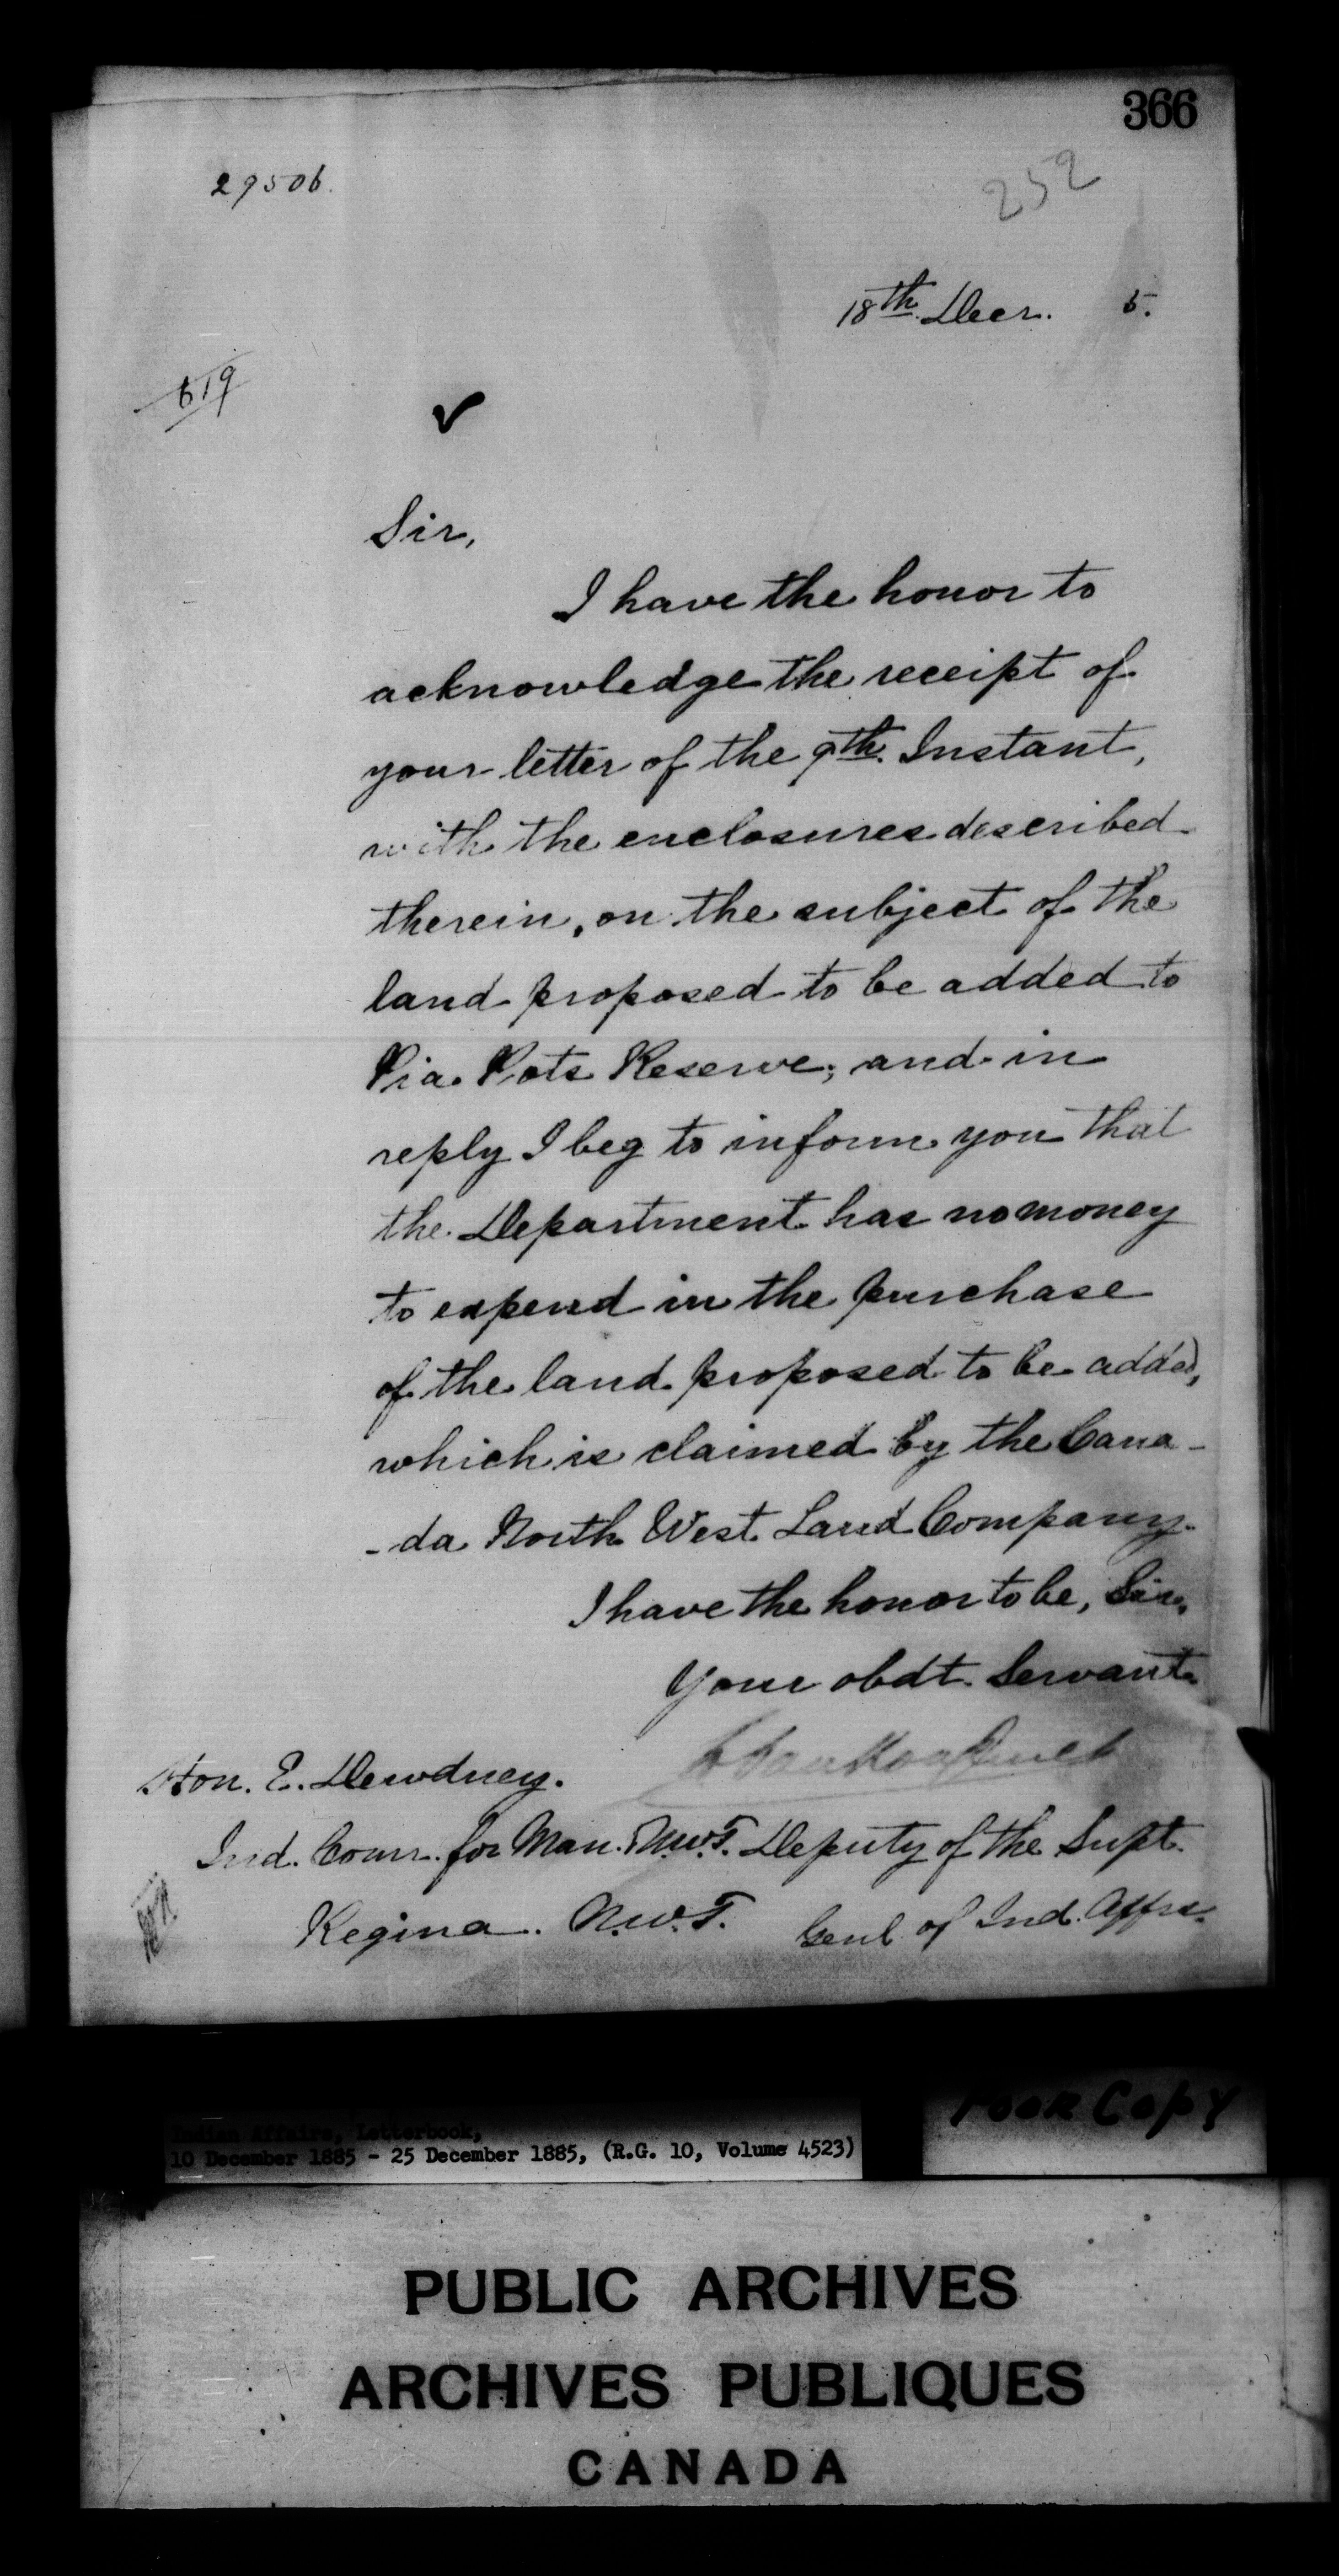 366
29506.
252
18th Decr. 5.
619
Sir,
I have the honor to
acknowledge the receipt of
your letter of the 9th. Instant,
with the enclosures described
therein, on the subject of the
land proposed to be added to
Pia Pots Reserve; and in
reply I beg to inform you that
the Department has no money
to expend in the purchase
of the land proposed to be added,
which is claimed by the Cana-
-da North West Land Company.
I have the honor to be, Sir,
Your obdt. Servant
L VanKoughnet
Hon. E. Dewdney.
Ind. Comr. for Man. N.W.T. Deputy of the Supt.
Regina. N.W.T. Genl of Ind. Affrs.
Poor Copy
Indian Affairs, Letterbook,
10 December 1885 - 25 December 1885, (R.G. 10, Volume 4523)
PUBLIC ARCHIVES
ARCHIVES PUBLIQUES
CANADA